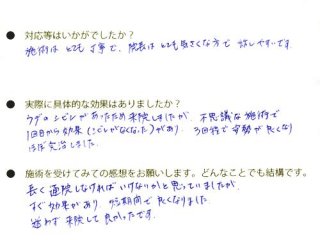 ● 対応等はいかがでしたか？
施術は とても 丁寧で、院長は とても 気さくな方で 話しやすいです。
● 実際に具体的な効果はありましたか？
ウデのシビレがあったため来院しましたが、不思議な施術で
1回目から効果(シビレがなくなった)があり、3回程で姿勢が良くなり
ほぼ完治しました。
● 施術を受けてみての感想をお願いします。どんなことでも結構です。
長く通院しなければいけないかと思っていましたが、
すぐ効果があり、短期間で良くなりました。
迷わず来院して良かったです。